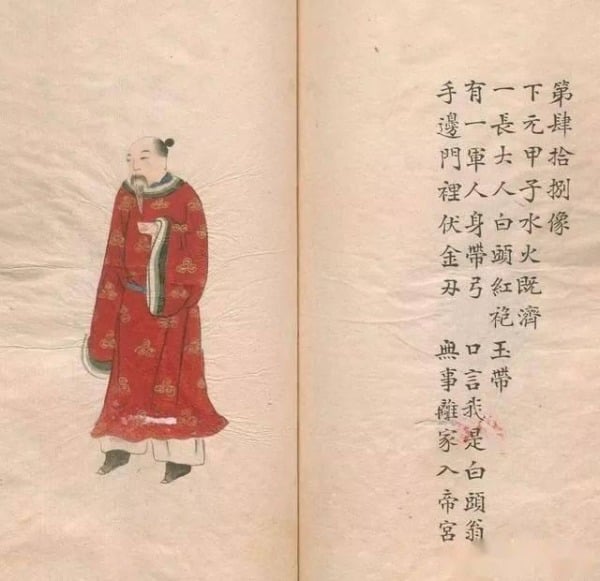 第肆拾捌像
下元甲子水火既濟
一長大人白頭紅袍玉帶
有一軍人身帶弓 口言我是白頭翁
手邊門裡伏金刃 無事離家入帝宮